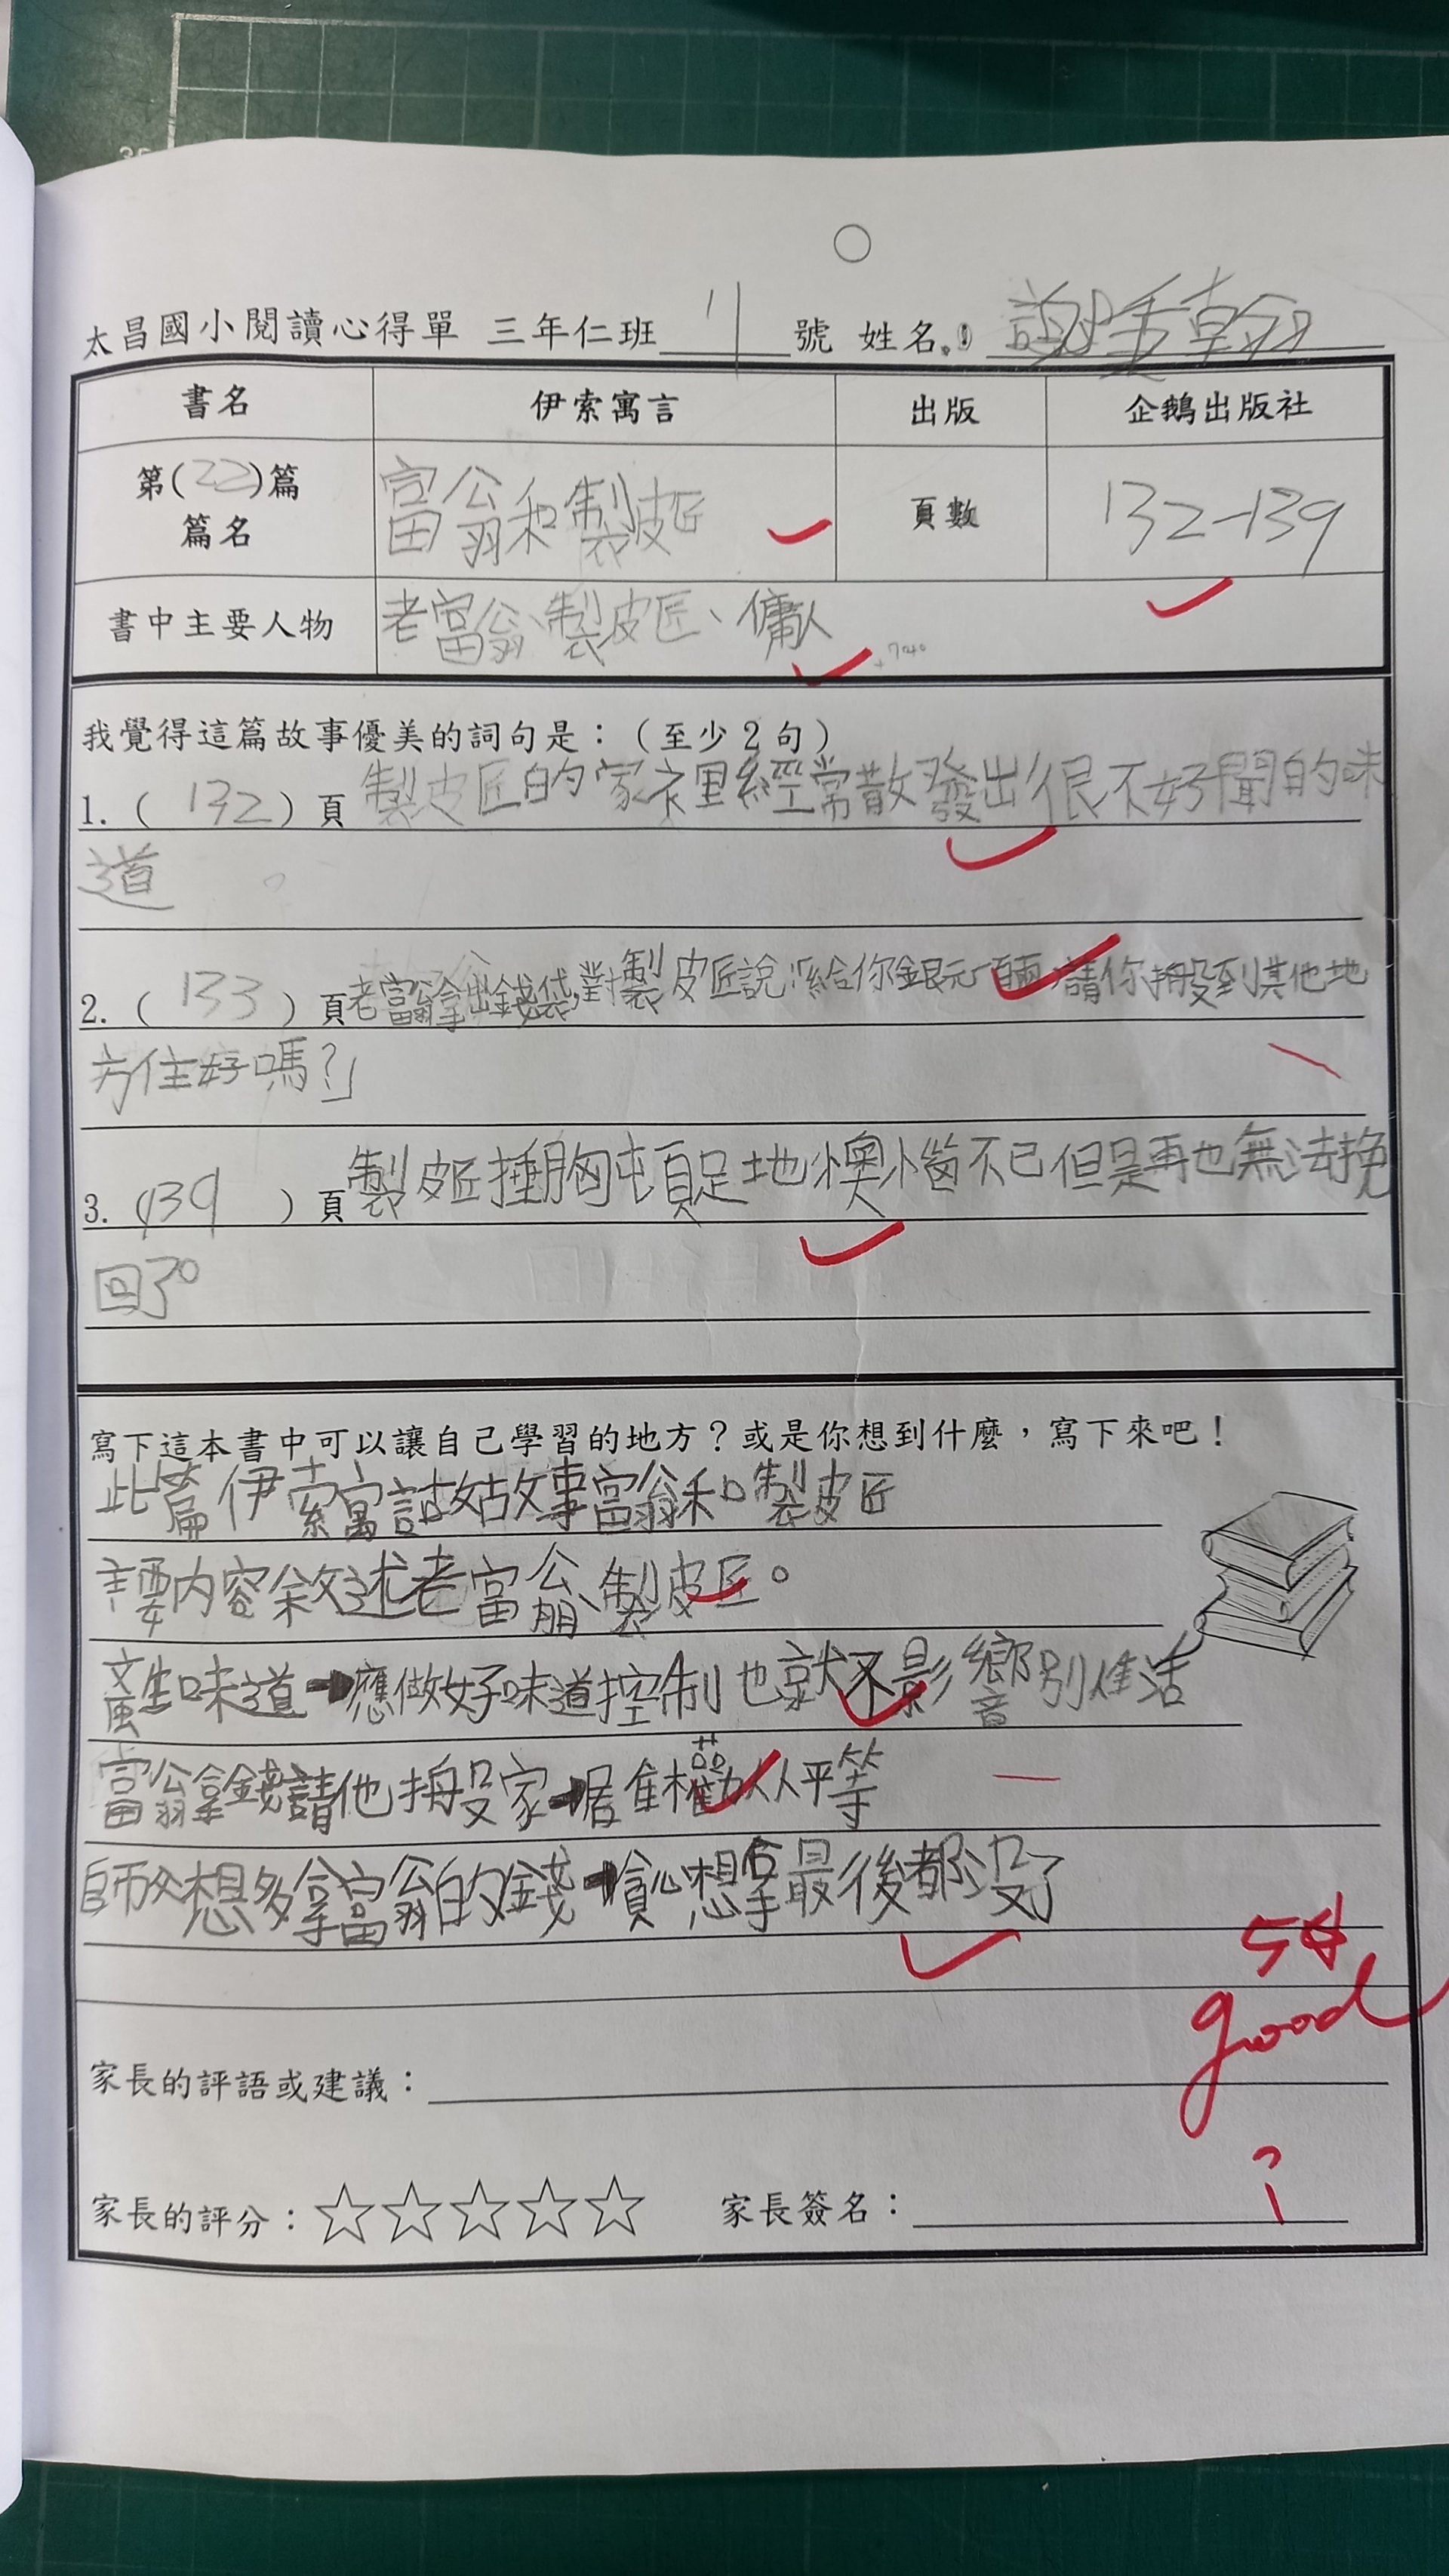 太昌國小閱讀心得單 三年仁班 11 號 姓名: 謝秉翰
書名 伊索寓言 出版 企鵝出版社
第(22)篇 篇名 富翁和製皮匠 頁數 132-139
書中主要人物 老富翁、製皮匠、傭人
我覺得這篇故事優美的詞句是：（至少2句）
1.（132）頁 製皮匠的家裡經常散發出很不好聞的味
道。
2.（133）頁 老富翁拿出錢袋,對製皮匠說:「給你銀元一百兩,請你搬到其他地
方住好嗎?」
3.（139）頁 製皮匠捶胸頓足地懊惱不已但是再也無法挽
回了。
寫下這本書中可以讓自己學習的地方？或是你想到什麼，寫下來吧！
此篇伊索寓言故事富翁和製皮匠
主要內容敘述老富翁、製皮匠。
產生味道→應做好味道控制也就不影響別人生活
富翁拿錢請他搬家→居住權人人平等
師父想多拿富翁的錢→貪心想拿最後都沒了
5分
good
家長的評語或建議：
家長的評分：☆☆☆☆☆ 家長簽名：
?